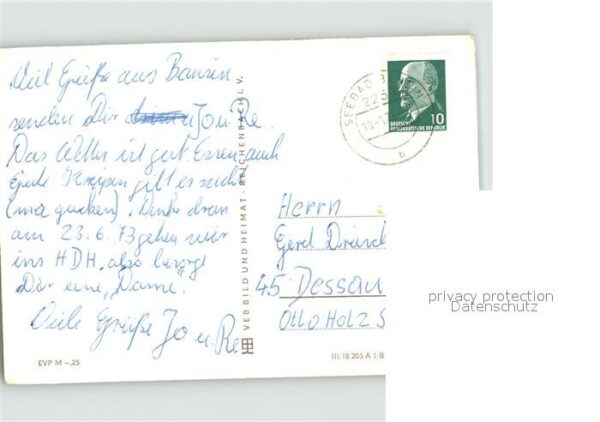 Viel Grüße aus Bansin
senden Dir Jo u. Re.
Das Wetter ist gut. Essen auch
Gute Kneipen gibt es nicht
(nur gucken). Denke dran
am 23.6.73 gehen wir
ins HDH, also besorgt
Dir eine "Dame".
Viele Grüße Jo u. Re
EVP M –,25
VEB BILD UND HEIMAT · REICHENBACH I. V.
SEEBAD
10
DEUTSCHE
DEMOKRATISCHE REPUBLIK
b
Herrn
Gerd
45 Dessau
Otto Holz S
III/18/203 A 1/8
privacy protection
Datenschutz